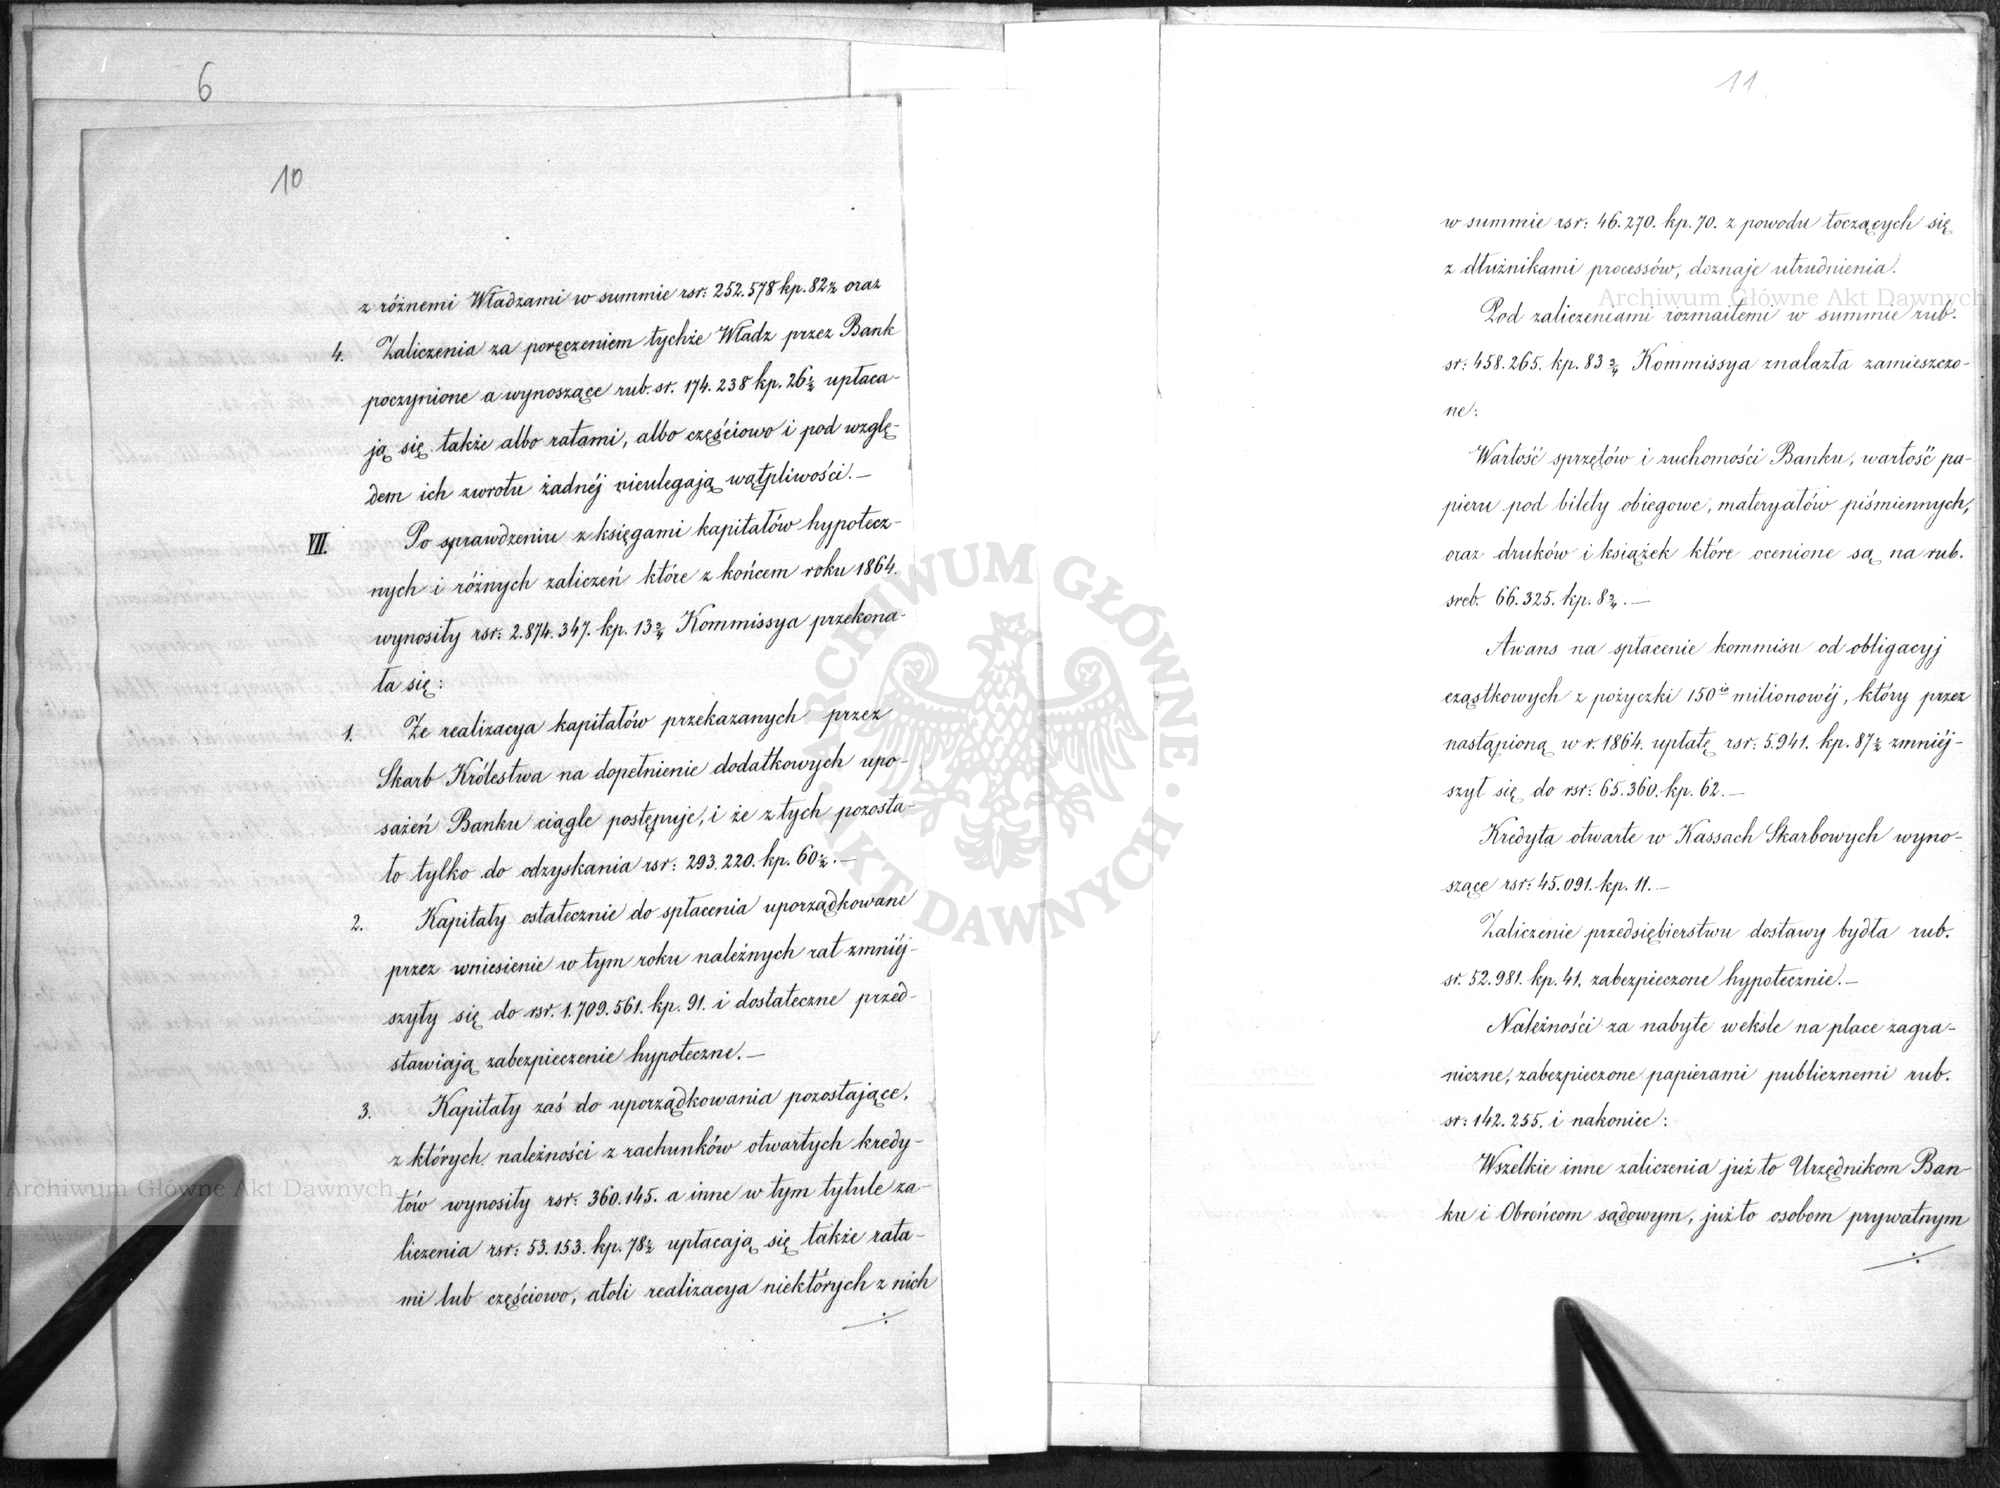 6
10
z różnemi Władzami w summie rsr: 252.578 kp. 82½ oraz
4. Zaliczenia za poręczeniem tychże Władz przez Bank
poczynione a wynoszące rub. sr. 174.238 kp. 26½ upłaca-
ją się także albo ratami, albo częściowo i pod wzglę-
dem ich zwrotu żadnéj nieulegają wątpliwości.—
VII. Po sprawdzeniu z księgami kapitałów hypotecz-
nych i różnych zaliczeń które z końcem roku 1864.
wynosiły rsr: 2.874.347. kp. 13¾ Kommissya przekona-
ła się:
1. Że realizacya kapitałów przekazanych przez
Skarb Królestwa na dopełnienie dodatkowych upo-
sażeń Banku ciągle postępuje, i że z tych pozosta-
ło tylko do odzyskania rsr: 293.220. kp. 60½.—
2. Kapitały ostatecznie do spłacenia uporządkowane
przez wniesienie w tym roku należnych rat zmniéj-
szyły się do rsr. 1.709.561. kp. 91. i dostateczne przed-
stawiają zabezpieczenie hypoteczne.—
3. Kapitały zaś do uporządkowania pozostające,
z których należności z rachunków otwartych kredy-
tów wynosiły rsr: 360.145. a inne w tym tytule za-
liczenia rsr: 53.153. kp. 78½ upłacają się także rata-
mi lub częściowo, atoli realizacya niektórych z nich
11
w summie rsr: 46.270. kp. 70. z powodu toczących się
z dłużnikami processów, doznaje utrudnienia.
Pod zaliczeniami rozmaitemi w summie rub.
sr: 458.265. kp. 83¾ Kommissya znalazła zamieszczo-
ne:
Wartość sprzętów i ruchomości Banku, wartość pa-
pieru pod bilety obiegowe, materyałów piśmiennych,
oraz druków i książek które ocenione są na rub.
sreb. 66.325. kp. 8¾.—
Awans na spłacenie kommisu od obligacyj
cząstkowych z pożyczki 150to milionowéj, który przez
nastąpioną w r. 1864. upłatę rsr: 5.941. kp. 87½ zmniéj-
szył się do rsr: 65.360. kp. 62.—
Kredyta otwarte w Kassach Skarbowych wyno-
szące rsr: 45.091. kp. 11.—
Zaliczenie przedsiębierstwu dostawy bydła rub.
sr. 52.981. kp. 41, zabezpieczone hypotecznie.—
Należności za nabyte weksle na place zagra-
niczne, zabezpieczone papierami publicznemi rub.
sr: 142.255. i nakoniec:
Wszelkie inne zaliczenia już to Urzędnikom Ban-
ku i Obrońcom sądowym, już to osobom prywatnym
Archiwum Główne Akt Dawnych
Archiwum Główne Akt Dawnych
ARCHIWUM GŁÓWNE
AKT DAWNYCH